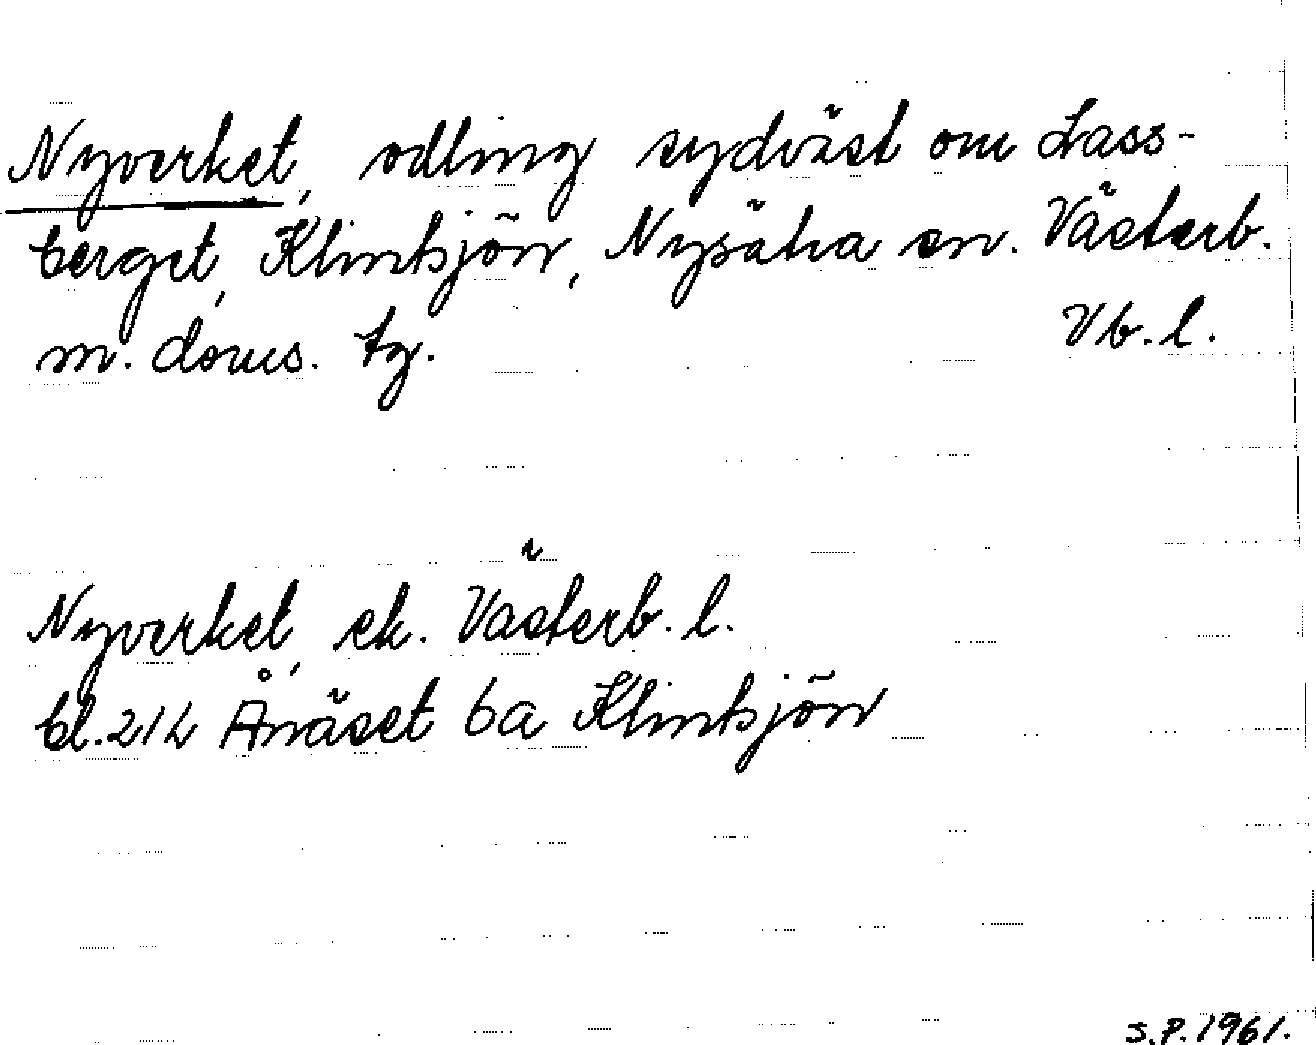 Nyverket, odling sydväst om Lass-
berget, Klintsjön, Nysätra sn. Västerb.
m. doms. tg. Vb. l.
Nyverket, ek. Västerb. l.
bl. 21L Ånäset 6a Klintsjön
S.P. 1961.